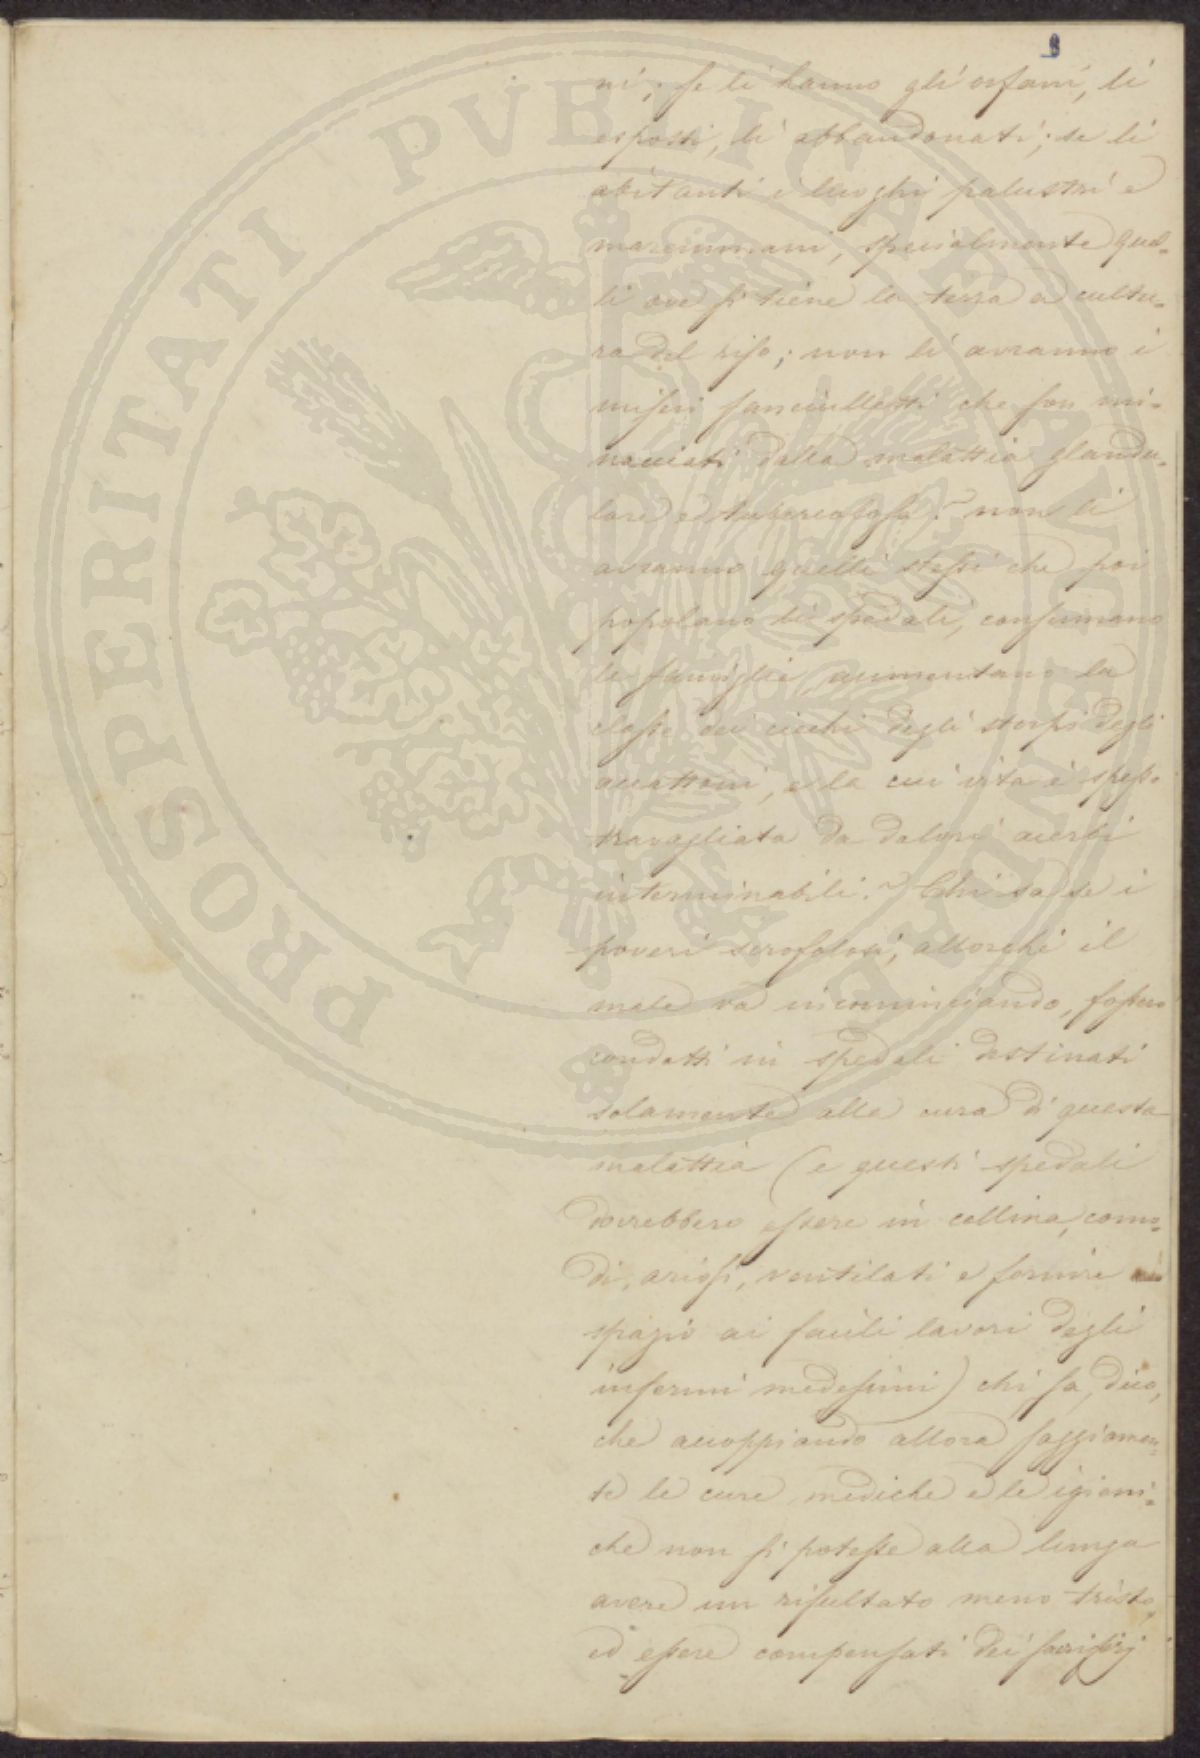 9
ni; se li hanno gli orfani, li
esposti, li abbandonati; se li
abitanti i luoghi palustri e
maremmani, specialmente quel-
li ove si tiene la terra a cultu-
ra del riso; non li avranno i
miseri fanciulletti che son mi-
nacciati dalla malattia glandu-
lare e tubercolosa? non li
avranno quelli stessi che poi
popolano li spedali, consumano
le famiglie, aumentano la
classe dei ciechi degli storpi degli
accattoni, e la cui vita è spesso
travagliata da dolori acerbi
interminabili? Chi sa se i
poveri scrofolosi, allorchè il
male va incominciando, fossero
condotti in spedali destinati
solamente alla cura di questa
malattia (e questi spedali
dovrebbero essere in collina, como-
di, ariosi, ventilati e fornire
spazio ai facili lavori degli
infermi medesimi) chi sa, dico,
che accoppiando allora saggiamen-
te le cure mediche e le igieni-
che non si potesse alla lunga
avere un risultato meno tristo,
ed essere compensati dei sacrifizj
PROSPERITATI PVBLICAE AVGENDAE